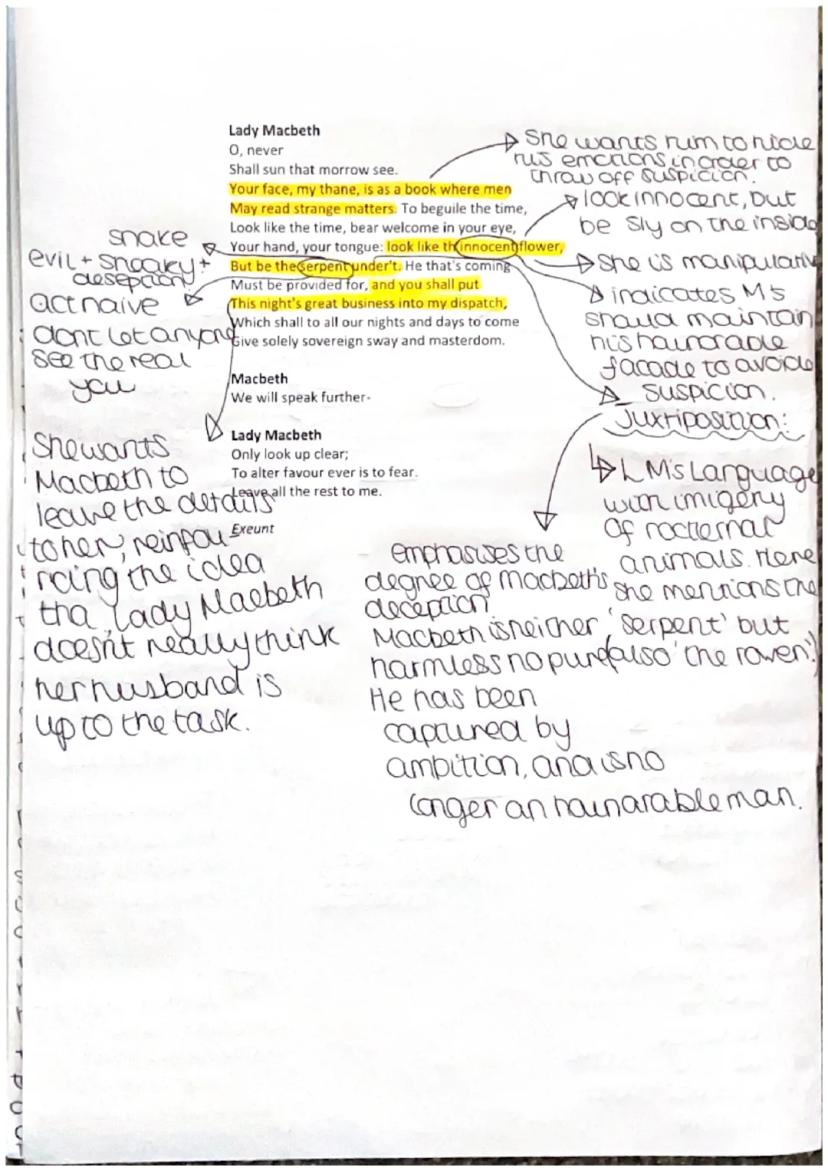 Lady Macbeth
O, never
Shall sun that morrow see.
Your face, my thane, is as a book where men
May read strange matters. To beguile the time,
Look like the time, bear welcome in your eye,
Your hand, your tongue: look like th innocent flower,
But be the serpent under't. He that's coming
Must be provided for, and you shall put
This night's great business into my dispatch,
Which shall to all our nights and days to come
Give solely sovereign sway and masterdom.
Macbeth
We will speak further-
Lady Macbeth
Only look up clear;
To alter favour ever is to fear.
Leave all the rest to me.
Exeunt
She wants him to hide
his emotions in order to
throw off suspicion.
look innocent, but
be sly on the inside
She is manipulative
indicates M's
should maintain
his hounorable
facade to avoide
suspicion.
Juxtiposition:
L M's Language
with imigery
of nocternal
animals. Here
she mentions the
'serpent' but
also 'the raven'
snake
evil + sneaky +
deseption
act naive
dont let anyone
see the real
you
She wants
Macbeth to
leave the details
to her, reinfou
rcing the idea
tha Lady Macbeth
doesn't really think
her husband is
up to the task.
emphasises the
degree of Macbeth's
deception
Macbeth is neither
harmless no pure
He has been
captured by
ambition, and is no
longer an hounarable man.